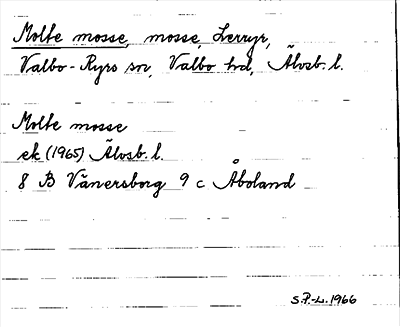 Molte mosse, mosse, Lerryr,
Valbo-Ryrs sn, Valbo hd, Älvsb. l.
Molte mosse
ek (1965) Älvsb. l.
8 B Vänersborg 9 c Åboland
S.P.-L. 1966